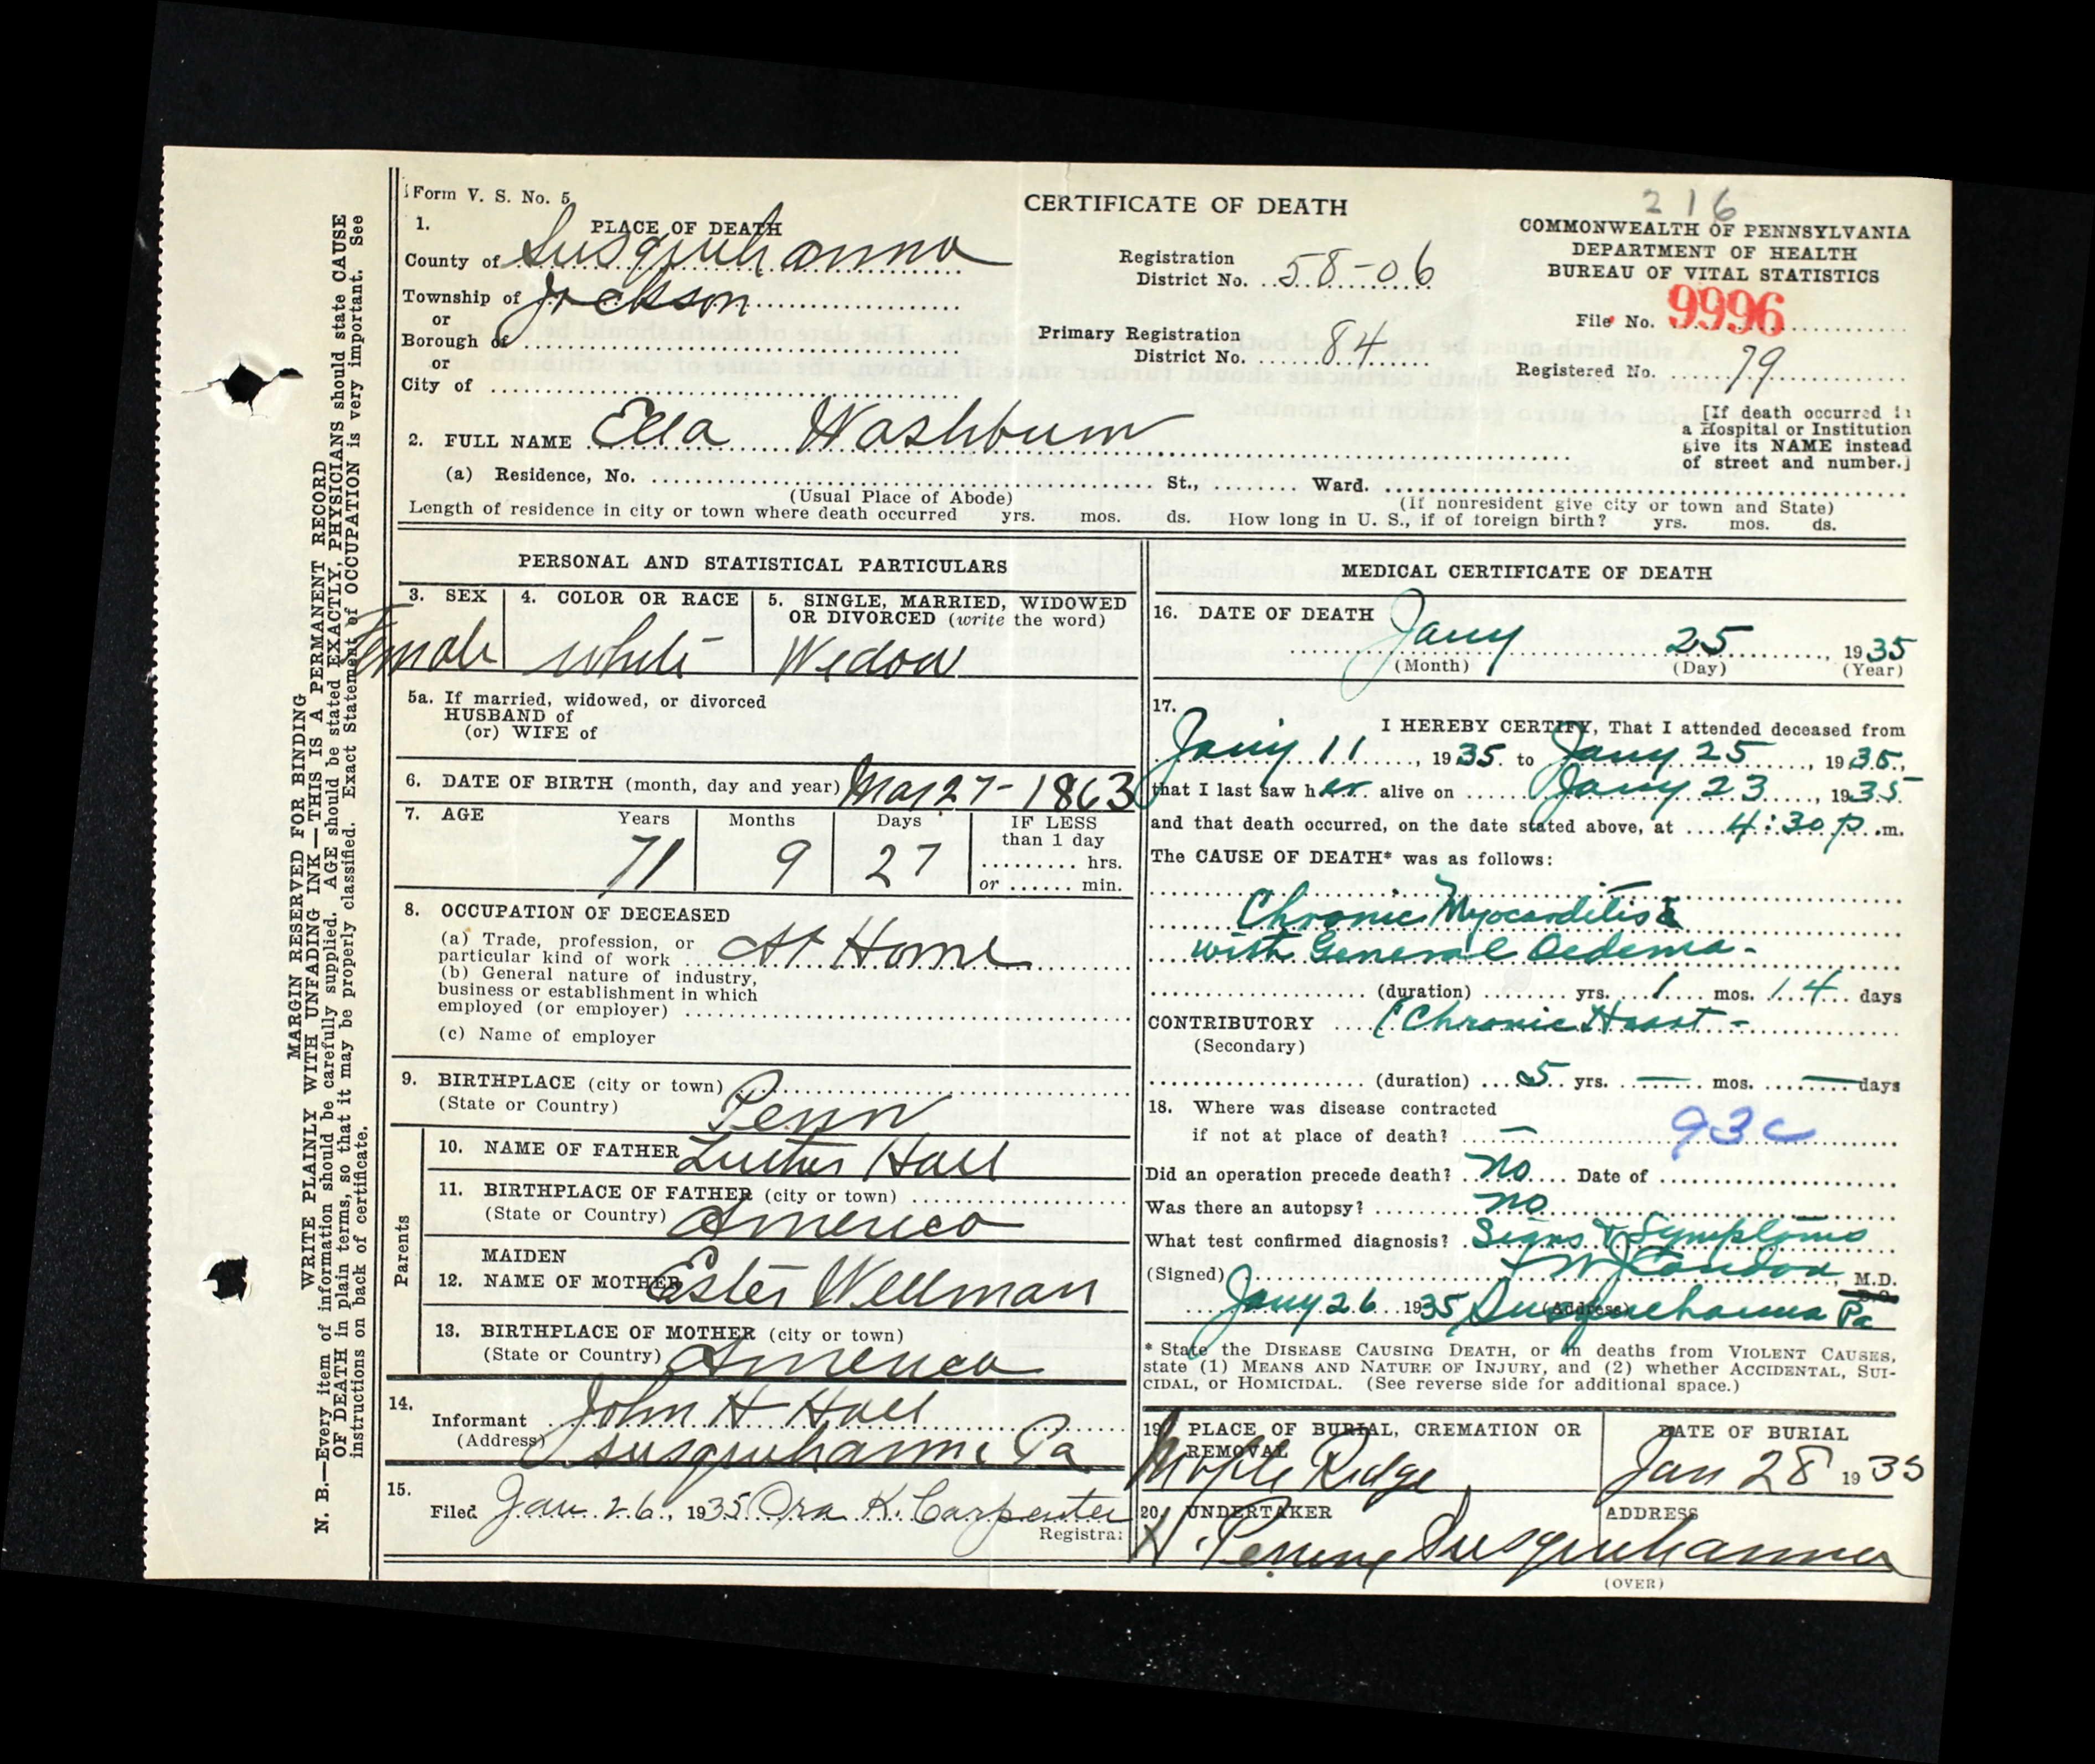 Form V. S. No. 5
CERTIFICATE OF DEATH
216
COMMONWEALTH OF PENNSYLVANIA
DEPARTMENT OF HEALTH
BUREAU OF VITAL STATISTICS
1. PLACE OF DEATH
County of Susquehanna
Township of Jackson
or
Borough of
or
City of
Registration
District No. 58-06
Primary Registration
District No. 84
File No. 9996
Registered No. 79
[If death occurred in
a Hospital or Institution
give its NAME instead
of street and number.]
2. FULL NAME Ella Washburn
(a) Residence, No. St., Ward.
(Usual Place of Abode) (If nonresident give city or town and State)
Length of residence in city or town where death occurred yrs. mos. ds. How long in U. S., if of foreign birth? yrs. mos. ds.
PERSONAL AND STATISTICAL PARTICULARS
3. SEX 4. COLOR OR RACE 5. SINGLE, MARRIED, WIDOWED
OR DIVORCED (write the word)
Female White Widow
5a. If married, widowed, or divorced
HUSBAND of
(or) WIFE of
6. DATE OF BIRTH (month, day and year) Mar 27-1863
7. AGE Years Months Days IF LESS
than 1 day
hrs.
or min.
71 9 27
8. OCCUPATION OF DECEASED
(a) Trade, profession, or
particular kind of work At Home
(b) General nature of industry,
business or establishment in which
employed (or employer)
(c) Name of employer
9. BIRTHPLACE (city or town)
(State or Country) Penn
Parents
10. NAME OF FATHER Luther Hall
11. BIRTHPLACE OF FATHER (city or town)
(State or Country) America
MAIDEN
12. NAME OF MOTHER Ester Wellman
13. BIRTHPLACE OF MOTHER (city or town)
(State or Country) America
14.
Informant John H Hall
(Address) Susquehanna Pa
15.
Filed Jan. 26, 1935 Ora K. Carpenter
Registrar
MEDICAL CERTIFICATE OF DEATH
16. DATE OF DEATH Jany 25, 1935
(Month) (Day) (Year)
17.
I HEREBY CERTIFY, That I attended deceased from
Jany 11, 1935 to Jany 25, 1935,
that I last saw her alive on Jany 23, 1935
and that death occurred, on the date stated above, at 4:30 p.m.
The CAUSE OF DEATH* was as follows:
Chronic Myocarditis
with General Oedema-
(duration) yrs. 1 mos. 14 days
CONTRIBUTORY (Chronic Heart -
(Secondary)
(duration) 5 yrs. — mos. — days
18. Where was disease contracted
if not at place of death? —
93c
Did an operation precede death? no Date of
Was there an autopsy? no
What test confirmed diagnosis? Signs & Symptoms
(Signed) Condon, M.D.
D.O.
Jany 26 1935 (Address) Susquehanna Pa
* State the DISEASE CAUSING DEATH, or in deaths from VIOLENT CAUSES,
state (1) MEANS AND NATURE OF INJURY, and (2) whether ACCIDENTAL, SUI-
CIDAL, or HOMICIDAL. (See reverse side for additional space.)
19. PLACE OF BURIAL, CREMATION OR
REMOVAL
Maple Ridge
DATE OF BURIAL
Jan 28 1935
20. UNDERTAKER ADDRESS
H. Susquehanna
(OVER)
MARGIN RESERVED FOR BINDING
WRITE PLAINLY WITH UNFADING INK—THIS IS A PERMANENT RECORD
N. B.—Every item of information should be carefully supplied. AGE should be stated EXACTLY, PHYSICIANS should state CAUSE
OF DEATH in plain terms, so that it may be properly classified. Exact Statement of OCCUPATION is very important. See
instructions on back of certificate.